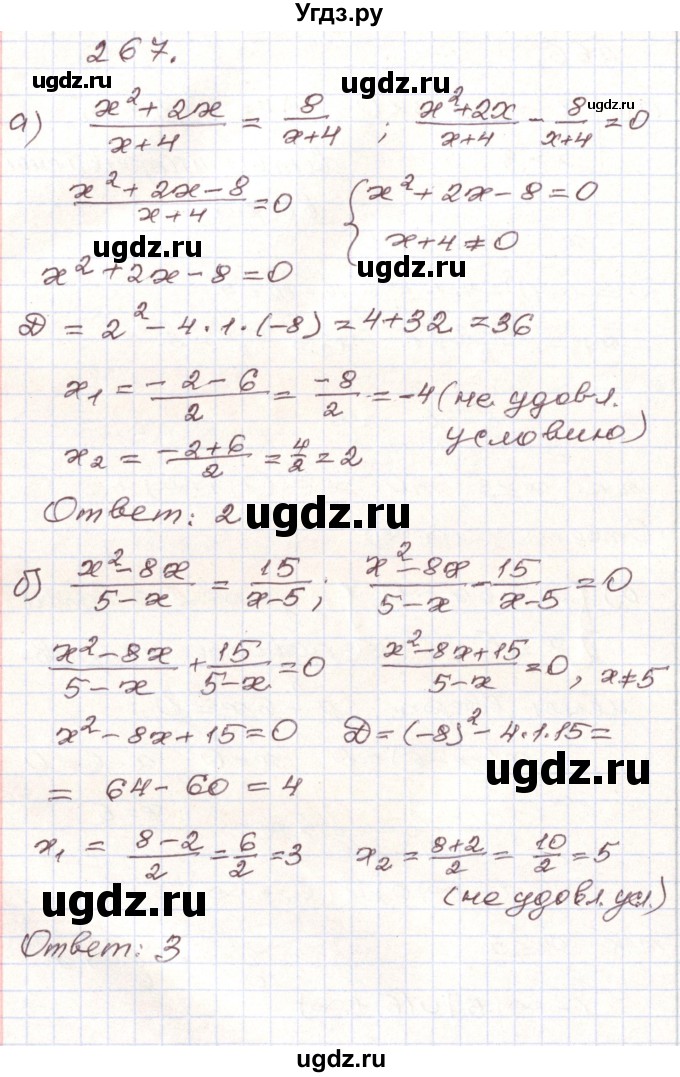 Угдз.ру
267.
ugdz.ru ugdz.ru
а) (x²+2x)/(x+4) = 8/(x+4) ; (x²+2x)/(x+4) - 8/(x+4) = 0
(x²+2x-8)/(x+4) = 0 { x²+2x-8=0
x+4≠0
ugdz.ru ugdz.ru
x²+2x-8=0
Д = 2²-4·1·(-8) = 4+32 = 36
x₁ = (-2-6)/2 = -8/2 = -4 (не удовл.
условию)
x₂ = (-2+6)/2 = 4/2 = 2
Ответ: 2
ugdz.ru
б) (x²-8x)/(5-x) = 15/(x-5) ; (x²-8x)/(5-x) - 15/(x-5) = 0
(x²-8x)/(5-x) + 15/(5-x) = 0 (x²-8x+15)/(5-x) = 0, x≠5
x²-8x+15=0 Д = (-8)²-4·1·15 =
= 64-60 = 4
ugdz.ru
x₁ = (8-2)/2 = 6/2 = 3 x₂ = (8+2)/2 = 10/2 = 5
(не удовл. усл.)
ugdz.ru
Ответ: 3
ugdz.ru